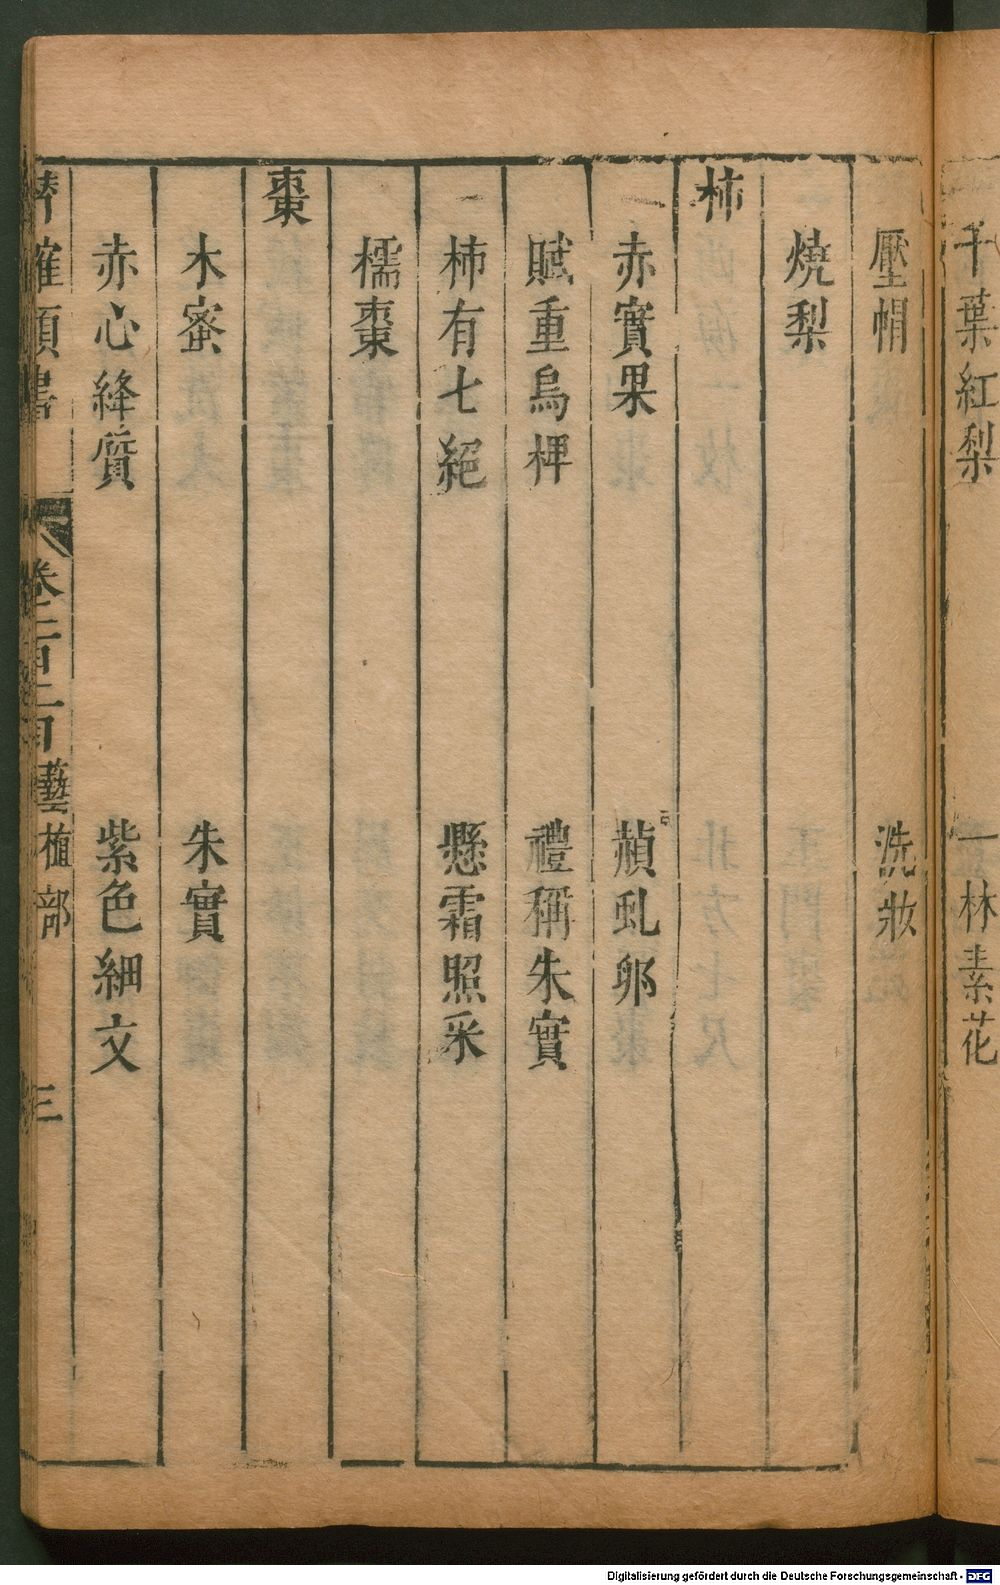 千葉紅梨 一林素花
壓帽 洗妝
燒梨
柿
赤實果 赬虬卵
賦重烏椑 禮稱朱實
柿有七絕 懸霜照采
檽棗
棗
木蜜 朱實
赤心絳質 紫色細文
潛確類書 卷二百二目 藝植部 三
Digitalisierung gefördert durch die Deutsche Forschungsgemeinschaft - DFG